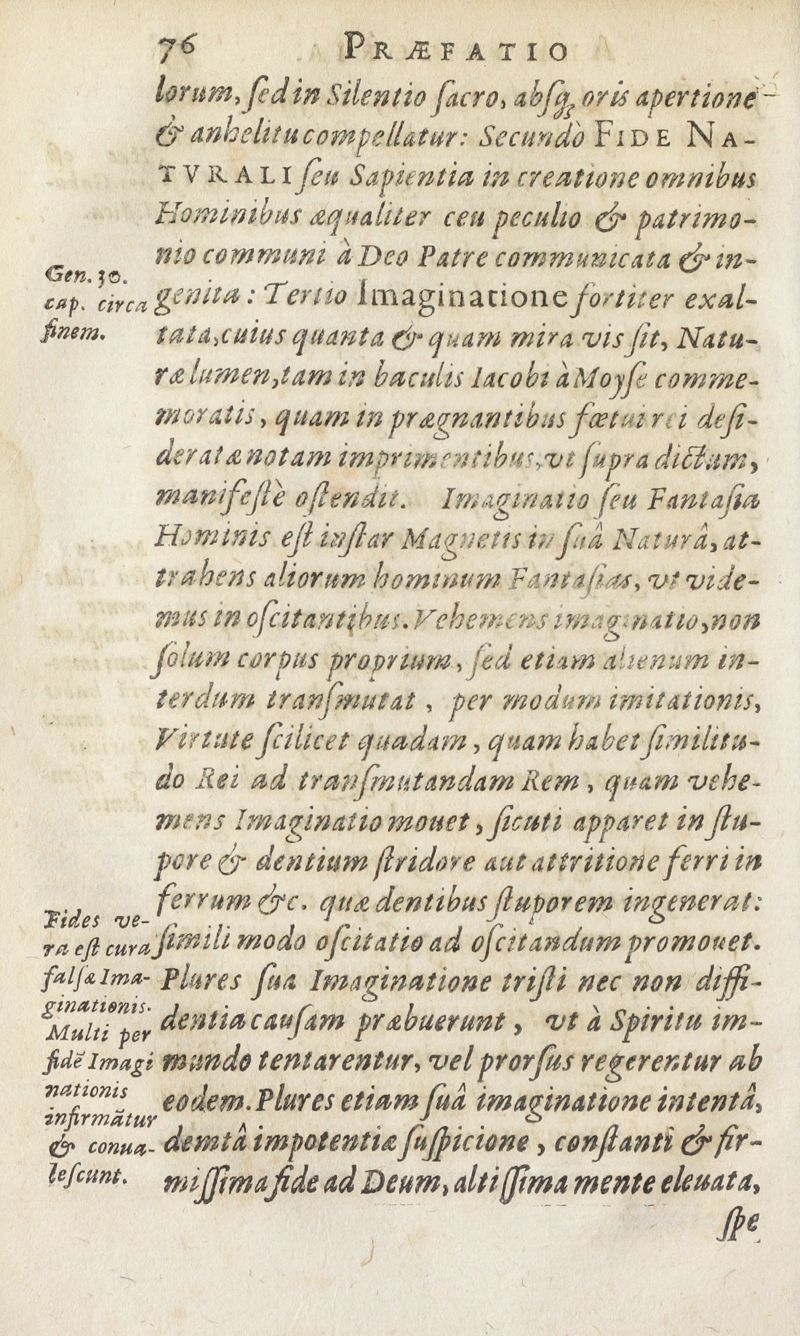 76 PRÆFATIO
lorum, ſed in Silentio ſacro, abſq; oris apertione
& anhelitu compellatur: Secundò FIDE NA-
TVRALI ſeu Sapientia in creatione omnibus
Hominibus æqualiter ceu peculio & patrimo-
nio communi à Deo Patre communicata & in-
genita: Tertio Imaginatione fortiter exal-
tata, cuius quanta & quam mira vis ſit, Natu-
ræ lumen, tam in baculis Iacobi à Moyſe comme-
moratis, quam in prægnantibus fœtui rei deſi-
deratæ notam imprimentibus, vt ſupra dictum,
manifeſtè oſtendit. Imaginatio ſeu Fantaſia
Hominis eſt inſtar Magnetis in ſuâ Naturâ, at-
trahens aliorum hominum Fantaſias, vt vide-
mus in oſcitantibus. Vehemens imaginatio, non
ſolum corpus proprium, ſed etiam alienum in-
terdum tranſmutat, per modum imitationis,
Virtute ſcilicet quadam, quam habet ſimilitu-
do Rei ad tranſmutandam Rem, quam vehe-
mens Imaginatio mouet, ſicuti apparet in ſtu-
pore & dentium ſtridore aut attritione ferri in
ferrum &c. quæ dentibus ſtuporem ingenerat:
ſimili modo oſcitatio ad oſcitandum promouet.
Plures ſua Imaginatione triſti nec non diffi-
dentia cauſam præbuerunt, vt à Spiritu im-
mundo tentarentur, vel prorſus regerentur ab
eodem. Plures etiam ſuâ imaginatione intentâ,
demtâ impotentiæ ſuſpicione, conſtanti & fir-
miſſima fide ad Deum, altiſſima mente eleuata,
ſpe
Gen. 30.
cap. circa
finem.
Fides ve-
ra eſt cura
falſæ Ima-
ginationis.
Multi per
fidē Imagi
nationis
infirmātur
& conua-
leſcunt.